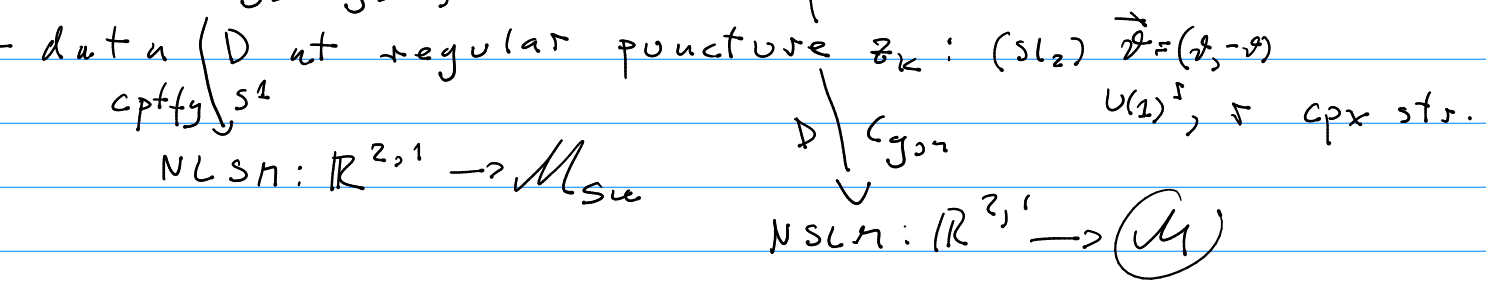 - data D at regular puncture z_k : (sl_2) ϑ⃗ = (ϑ, -ϑ)
cptfy S^1 U(1)^r, r cpx str.
D C_{g,n}
NLSM: ℝ^{2,1} → M_{SW}
NSLM: ℝ^{2,1} → M